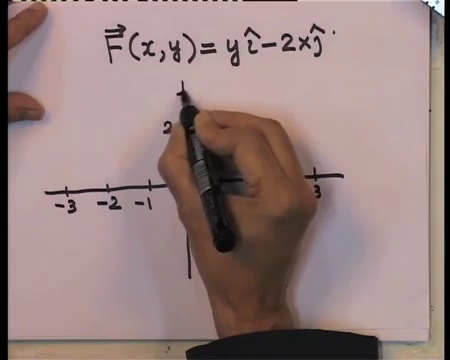 F⃗(x,y) = yî − 2xĵ
2
-3 -2 -1 3